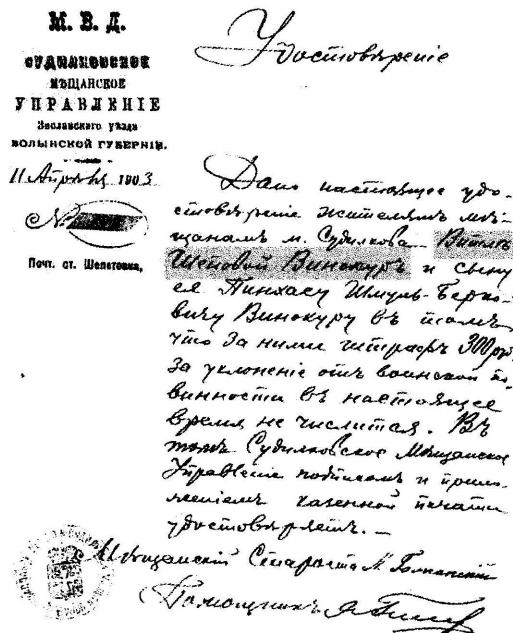 М. В. Д.
СУДИЛКОВСКОЕ
МѢЩАНСКОЕ
УПРАВЛЕНІЕ
Заславскаго уѣзда
ВОЛЫНСКОЙ ГУБЕРНІИ.
11 Апрѣля 1903
№
Почт. ст. Шепетовка,
Удостовѣреніе
Дано настоящее удо-
стовѣреніе жителямъ мѣ-
щанамъ м. Судилкова
Шеповой Винокуръ и сыну
ея Пинхасу Шмуль-Берко-
вичу Винокуру въ томъ
что за ними штрафъ 300 ру.
за уклоненіе отъ воинской по
винности въ настоящее
время не числится. Въ
томъ Судилковское Мѣщанское
Управленіе подписомъ и прило
женіемъ казенной печати
удостовѣряетъ. —
Мѣщанскій Староста
Помощникъ